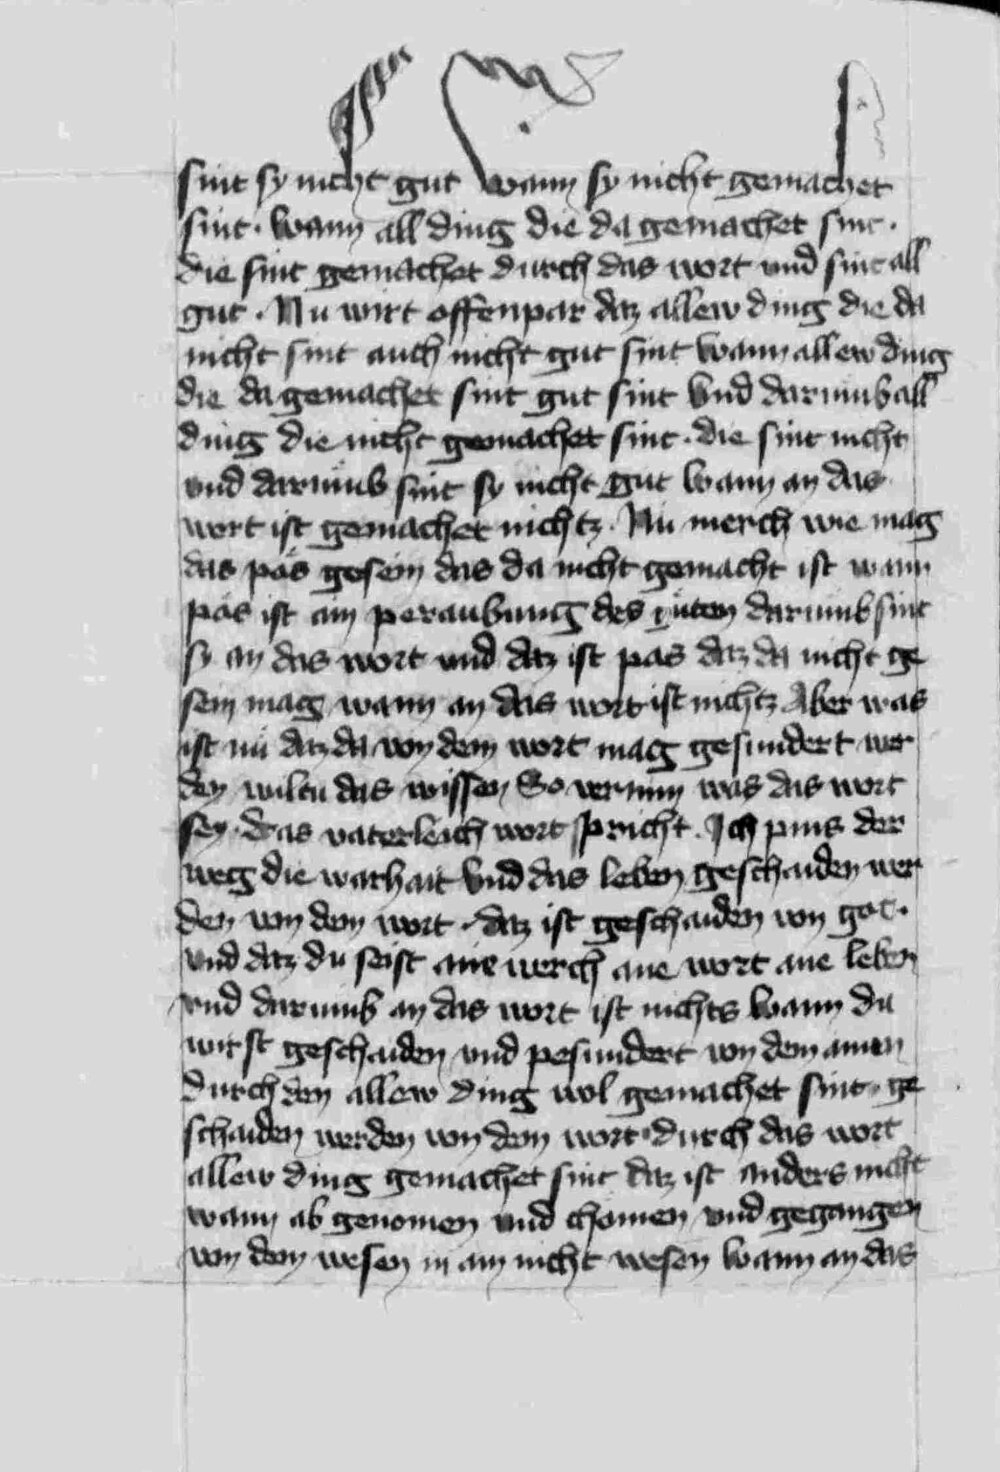 sint sy nicht gut wann sy nicht gemachet
sint · wann all ding die da gemachet sint ·
die sint gemachet durch das wort und sint all
gut · Nu wirt offenpar daz allew ding die da
nicht sint auch nicht gut sint wann allew ding
die da gemachet sint gut sint Und darumb all
ding die nicht gemachet sint · die sint nicht
und darumb sint sy nicht gut wann an das
wort ist gemachet nichtz · Nu merch wie mag
das pös gesein das da nicht gemacht ist wann
pös ist ain peraubung des guten darumb sint
sy an das wort und daz ist pös daz da nicht ge
sein mag wann an das wort ist nichtz Aber was
ist nu daz da von dem wort mag gesundert wer
den wiltu das wissen So vernim was das wort
sey · das vaterleich wort spricht · Ich pins der
weg die warhait Und das leben geschaiden wer
den von dem wort · daz ist geschaiden von got ·
und daz du seist ane werch ane wort ane leben
und darumb an das wort ist nichts wann du
wirst geschaiden und pesundert von dem ainen
durch den allew ding wol gemachet sint · ge
schaiden werden von dem wort · durch das wort
allew ding gemachet sint daz ist anders nicht
wann ab genomen und chomen und gegangen
von dem wesen in ain nicht wesen wann an das